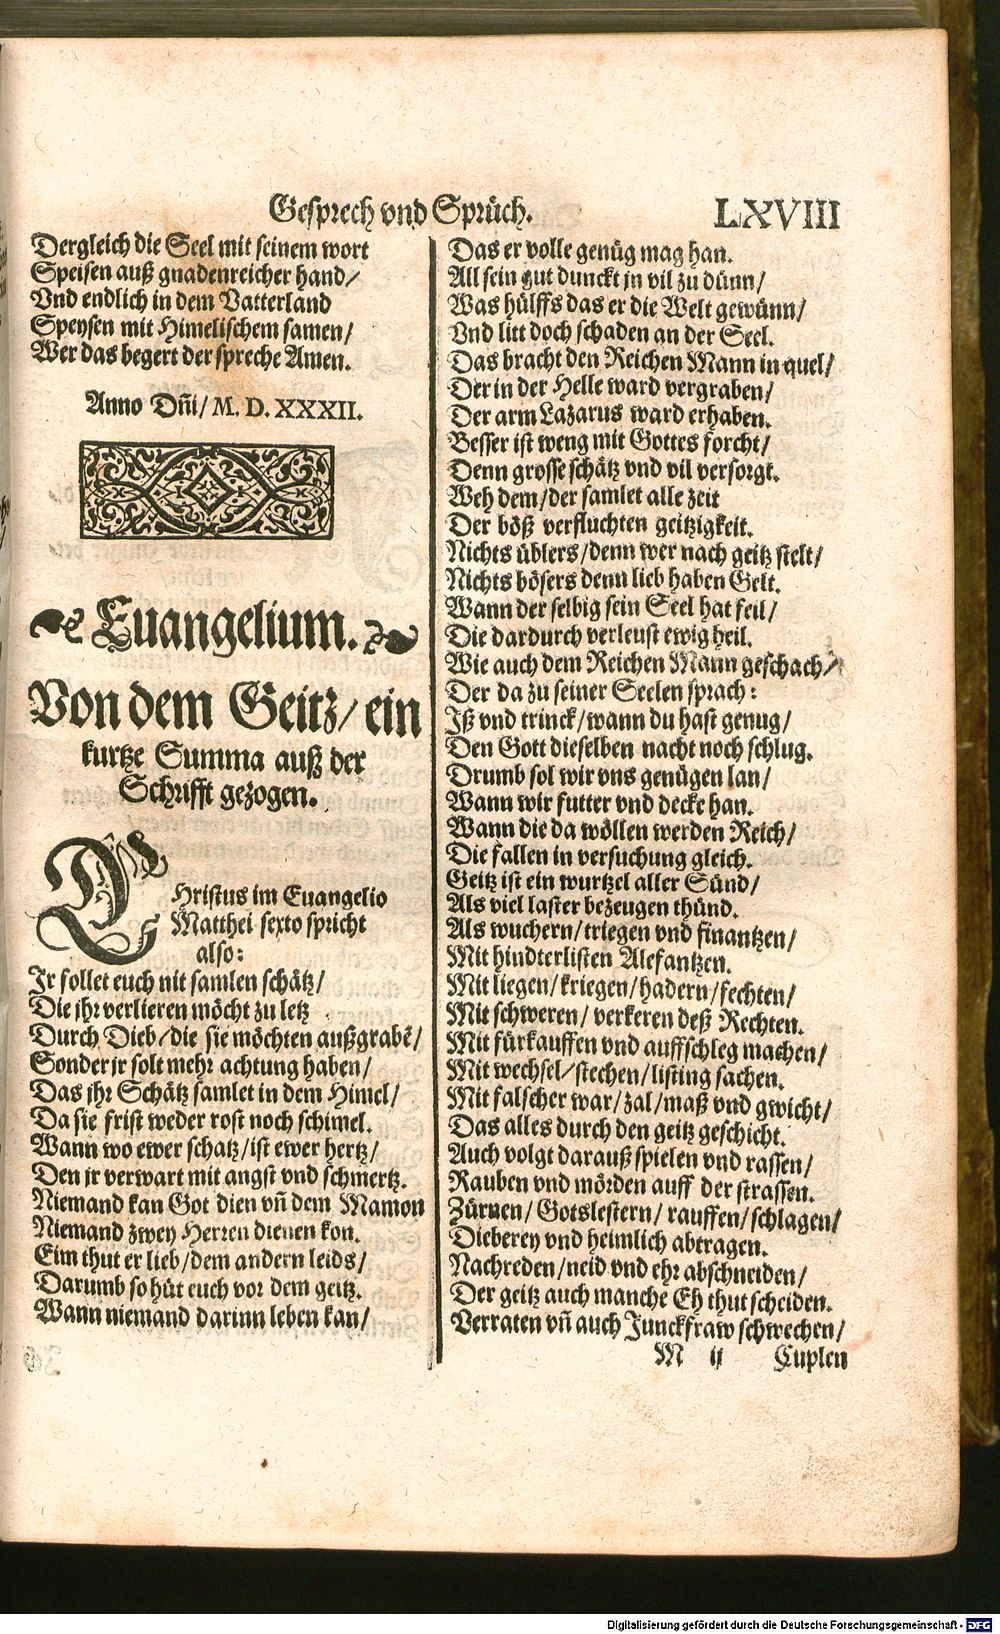 Gesprech vnd Sprüch. LXVIII
Dergleich die Seel mit seinem wort
Speisen auß gnadenreicher hand/
Vnd endlich in dem Vatterland
Speysen mit Himelischem samen/
Wer das begert der spreche Amen.
Anno Dñi/ M. D. XXXII.
Euangelium.
Von dem Geitz/ ein
kurtze Summa auß der
Schrifft gezogen.
CHristus im Euangelio
Matthei sexto spricht
also:
Ir sollet euch nit samlen schätz/
Die jhr verlieren möcht zu letz
Durch Dieb/die sie möchten außgrabē/
Sonder jr solt mehr achtung haben/
Das jhr Schätz samlet in dem Himel/
Da sie frist weder rost noch schimel.
Wann wo ewer schatz/ist ewer hertz/
Den jr verwart mit angst vnd schmertz.
Niemand kan Got dien vñ dem Mamon
Niemand zwey Herren dienen kon.
Eim thut er lieb/dem andern leids/
Darumb so hüt euch vor dem geitz.
Wann niemand darinn leben kan/
Das er volle genüg mag han.
All sein gut dunckt jn vil zu dünn/
Was hülffs das er die Welt gewünn/
Vnd litt doch schaden an der Seel.
Das bracht den Reichen Mann in quel/
Der in der Helle ward vergraben/
Der arm Lazarus ward erhaben.
Besser ist weng mit Gottes forcht/
Denn grosse schätz vnd vil versorgt.
Weh dem/der samlet alle zeit
Der böß verfluchten geitzigkeit.
Nichts üblers/denn wer nach geitz stelt/
Nichts bösers denn lieb haben Gelt.
Wann der selbig sein Seel hat feil/
Die dardurch verleust ewig heil.
Wie auch dem Reichen Mann geschach/
Der da zu seiner Seelen sprach:
Iß vnd trinck/wann du hast genug/
Den Gott dieselben nacht noch schlug.
Drumb sol wir vns genügen lan/
Wann wir futter vnd decke han.
Wann die da wöllen werden Reich/
Die fallen in versuchung gleich.
Geitz ist ein wurtzel aller Sünd/
Als viel laster bezeugen thünd.
Als wuchern/triegen vnd finantzen/
Mit hindterlisten Alefantzen.
Mit liegen/kriegen/hadern/fechten/
Mit schweren/ verkeren deß Rechten.
Mit fürkauffen vnd auffschleg machen/
Mit wechsel/stechen/listing sachen.
Mit falscher war/zal/maß vnd gwicht/
Das alles durch den geitz geschicht.
Auch volgt darauß spielen vnd rassen/
Rauben vnd mörden auff der strassen.
Zürnen/Gotslestern/rauffen/schlagen/
Dieberey vnd heimlich abtragen.
Nachreden/neid vnd ehr abschneiden/
Der geitz auch manche Eh thut scheiden.
Verraten vñ auch Junckfraw schwechen/
M ij Cuplen
Digitalisierung gefördert durch die Deutsche Forschungsgemeinschaft - DFG